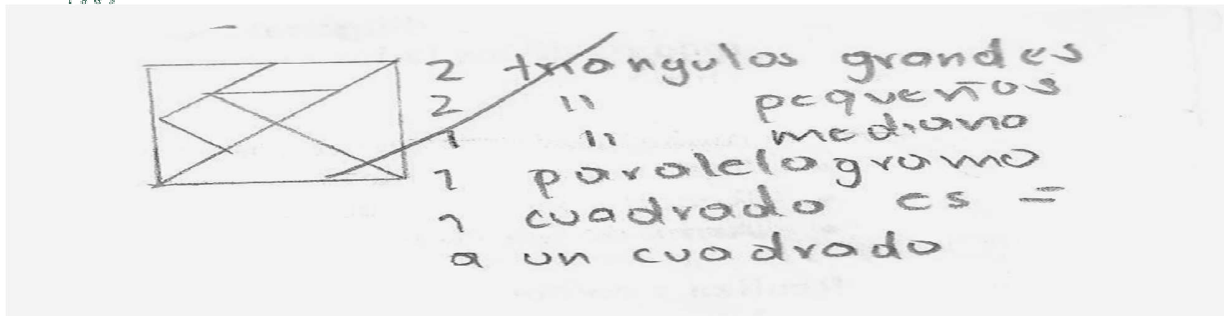 2 triangulos grandes
2 " pequeños
1 " mediano
1 paralelogramo
1 cuadrado es =
a un cuadrado